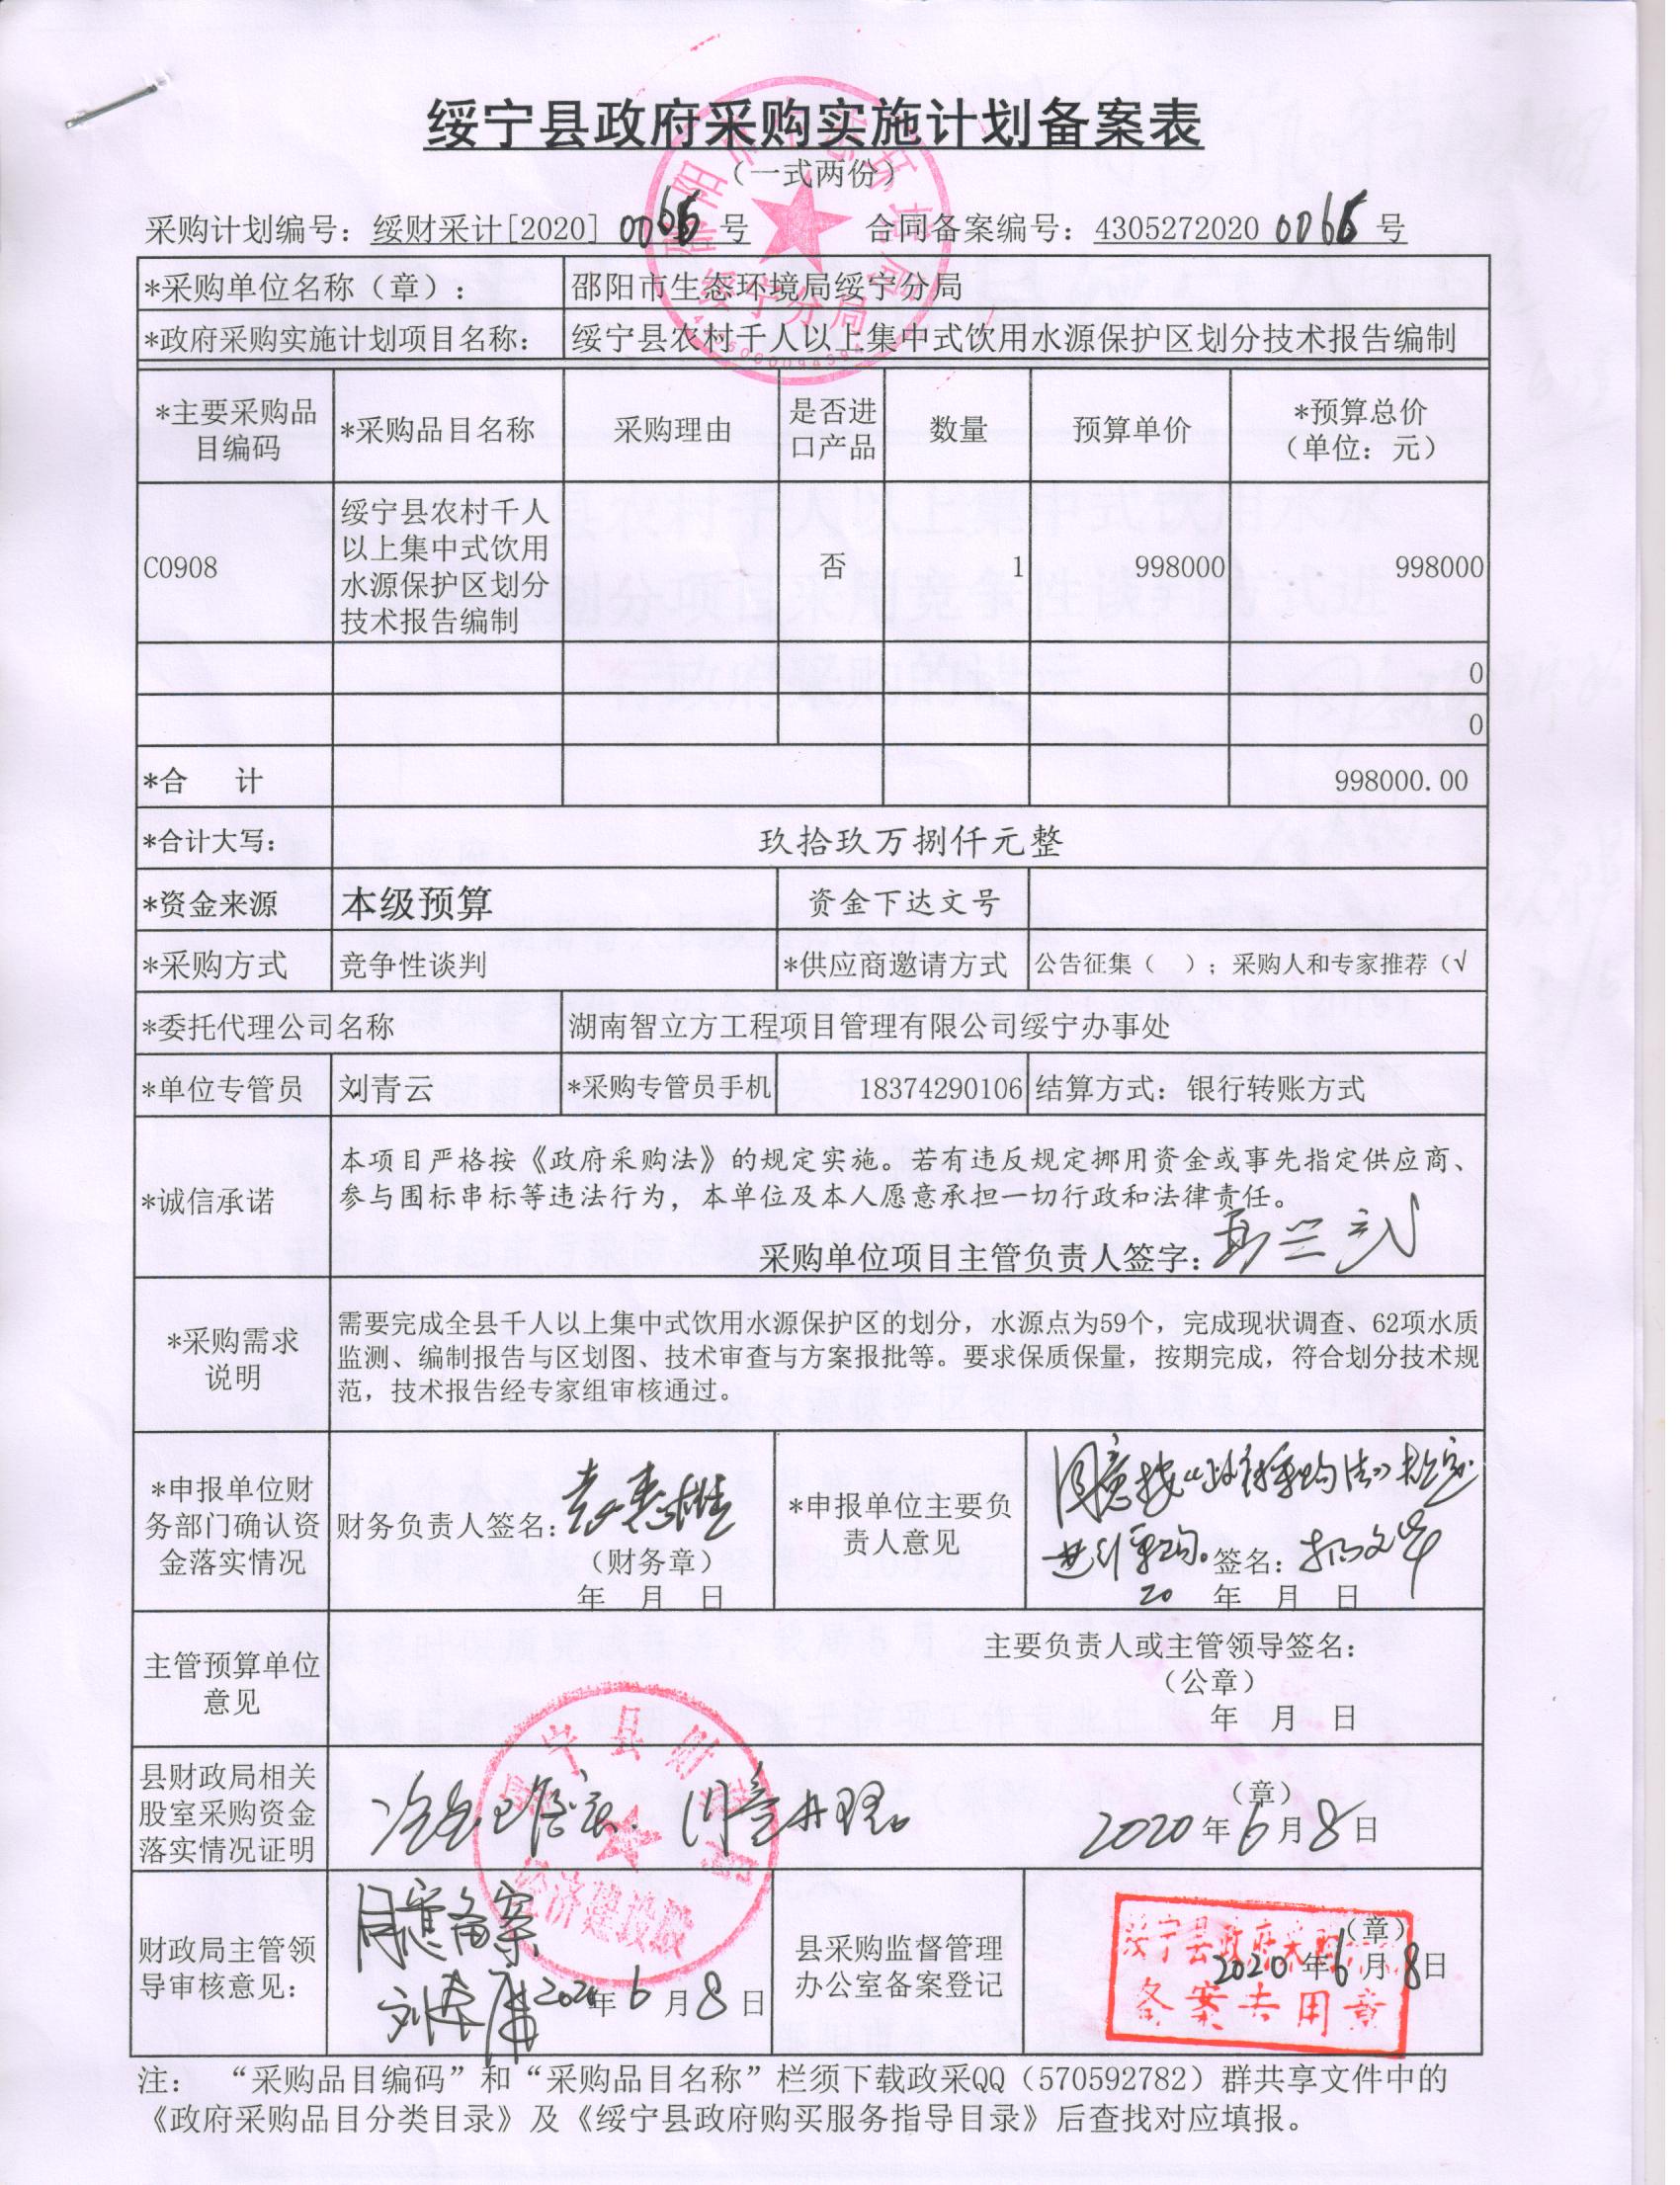 绥宁县政府采购实施计划备案表
（一式两份）
采购计划编号：绥财采计[2020] 0066 号 合同备案编号：4305272020 0066 号
*采购单位名称（章）： 邵阳市生态环境局绥宁分局
*政府采购实施计划项目名称： 绥宁县农村千人以上集中式饮用水源保护区划分技术报告编制
*主要采购品目编码 *采购品目名称 采购理由 是否进口产品 数量 预算单价 *预算总价（单位：元）
C0908 绥宁县农村千人以上集中式饮用水源保护区划分技术报告编制 否 1 998000 998000
0
0
*合 计 998000.00
*合计大写： 玖拾玖万捌仟元整
*资金来源 本级预算 资金下达文号
*采购方式 竞争性谈判 *供应商邀请方式 公告征集（ ）；采购人和专家推荐（√
*委托代理公司名称 湖南智立方工程项目管理有限公司绥宁办事处
*单位专管员 刘青云 *采购专管员手机 18374290106 结算方式：银行转账方式
*诚信承诺
本项目严格按《政府采购法》的规定实施。若有违反规定挪用资金或事先指定供应商、
参与围标串标等违法行为，本单位及本人愿意承担一切行政和法律责任。
采购单位项目主管负责人签字：
*采购需求说明
需要完成全县千人以上集中式饮用水源保护区的划分，水源点为59个，完成现状调查、62项水质
监测、编制报告与区划图、技术审查与方案报批等。要求保质保量，按期完成，符合划分技术规
范，技术报告经专家组审核通过。
*申报单位财务部门确认资金落实情况
财务负责人签名：
（财务章）
年 月 日
*申报单位主要负责人意见
同意按《政府采购法》规定
进行采购。签名：
20 年 月 日
主管预算单位意见
主要负责人或主管领导签名：
（公章）
年 月 日
县财政局相关股室采购资金落实情况证明
（章）
2020年6月8日
财政局主管领导审核意见：
同意备案
2020年6月8日
县采购监督管理办公室备案登记
（章）
2020年6月8日
备案专用章
注： “采购品目编码”和“采购品目名称”栏须下载政采QQ（570592782）群共享文件中的
《政府采购品目分类目录》及《绥宁县政府购买服务指导目录》后查找对应填报。